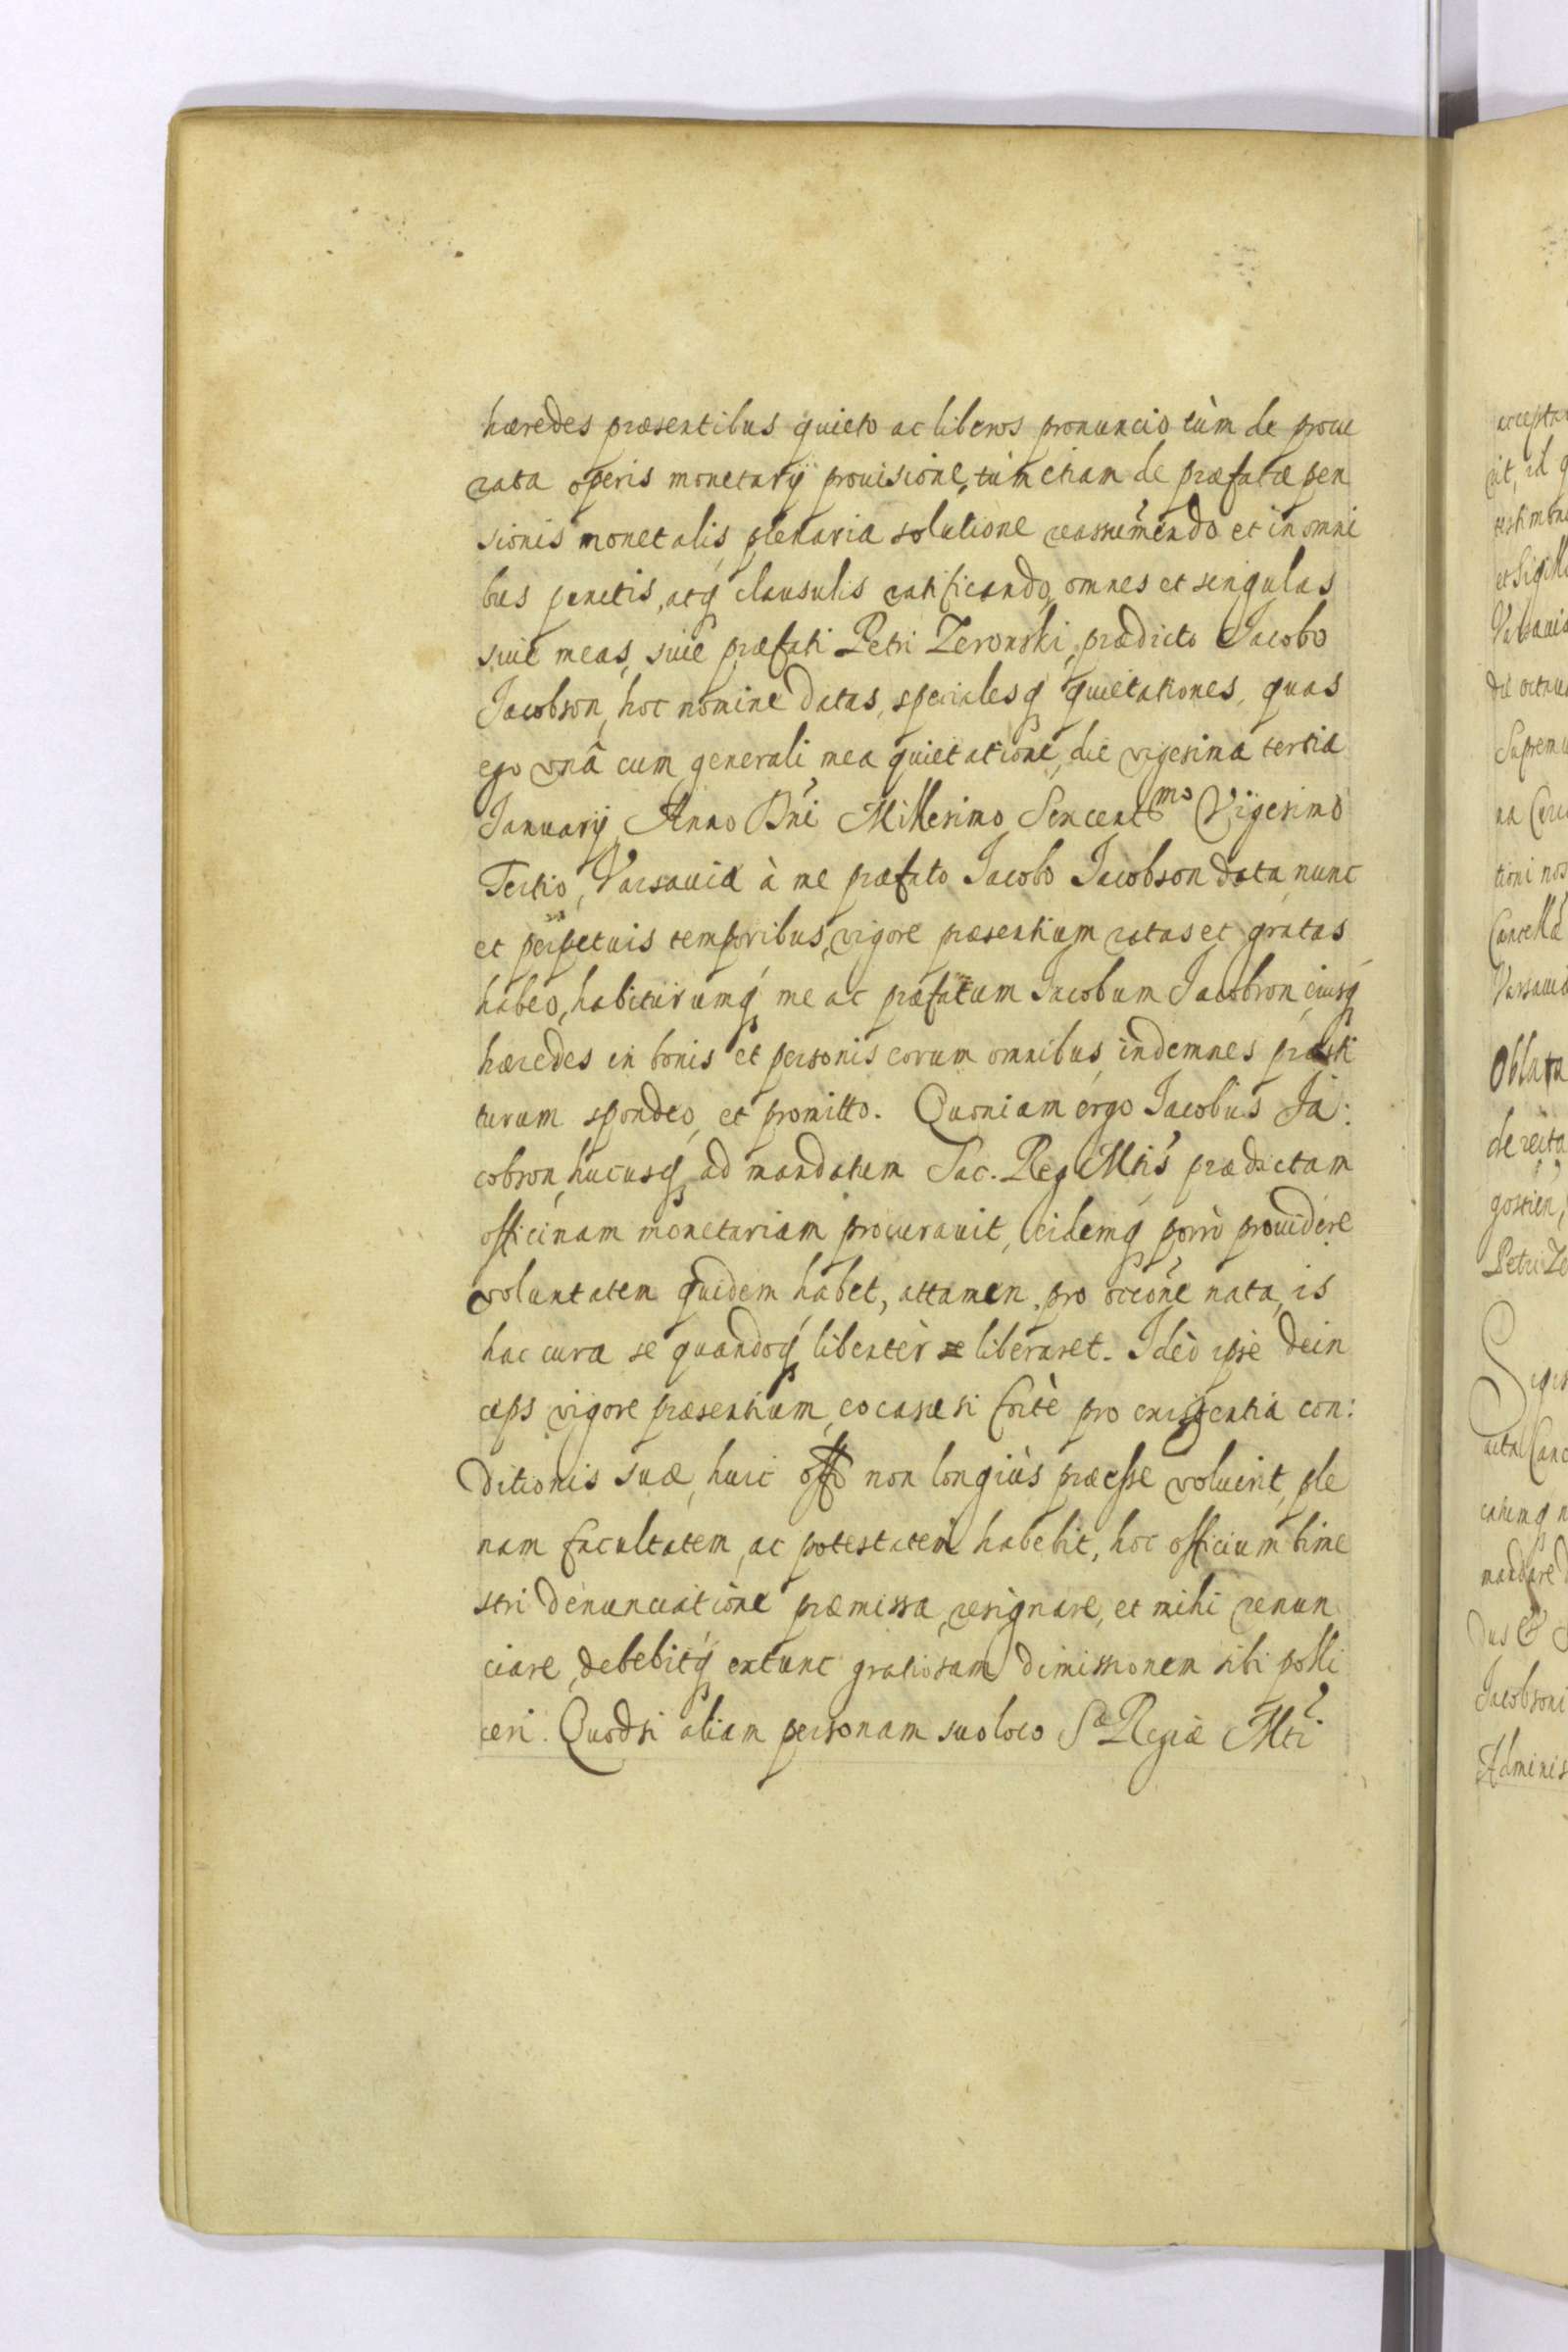 hæredes præsentibus quieto ac liberos pronuncio tùm de procu
rata operis monetarÿ prouisione, tùm etiam de præfatæ pen
sionis monetalis, plenaria solutione reassumendo et in omni
bus punctis, atq clausulis ratificando, omnes et singulas
siue meas, siue præfati Petri Zeronski, prædicto Jacobo
Jacobson, hoc nomine datas, specialesq quietationes, quas
ego vnâ cum generali mea quietatione, die vigesima tertia
Januarÿ Anno Dni Millesimo Sexcentmo Vigesimo
Tertio, Varsauiæ à me præfato Jacobo Jacobson data, nunc
et perpetuis temporibus, vigore præsentium ratas et gratas
habeo, habiturumq me ac præfatum Jacobum Jacobson, eiusq
hæredes in bonis et personis eorum omnibus, indemnes præsti
turum spondeo, et promitto. Quoniam ergo Jacobus Ja:
cobson, hucusq, ad mandatum Sac. Reg Mtis prædictam
officinam monetariam procurauit, eidemq porrò prouidere
voluntatem quidem habet, attamen pro occone nata, is
hac cura se quandoq libentèr se liberaret. Ideò ipse dein
ceps vigore præsentium, eo casu si fortè pro existentia con:
ditionis suæ, huic offo non longiùs præesse voluerit, ple
nam facultatem, ac potestatem habebit, hoc officium bime
stri denunciatione præmissa, resignare, et mihi renun
ciare, debebitq extunc gratiosam dimissionem sibi polli
ceri. Quodsi aliam personam suo loco Sæ Regiæ Mti
acceptar
rit, id q
testimoni
et Sigill
Varsauiæ
die octau
Supremu
na Cru
tioni nos
Cancella
Varsauiæ
Oblata
de recta
gostien,
Petri Ze
Sigis
acta Canc
catumq n
mandare d
dus &
Jacobsoni
Adminis